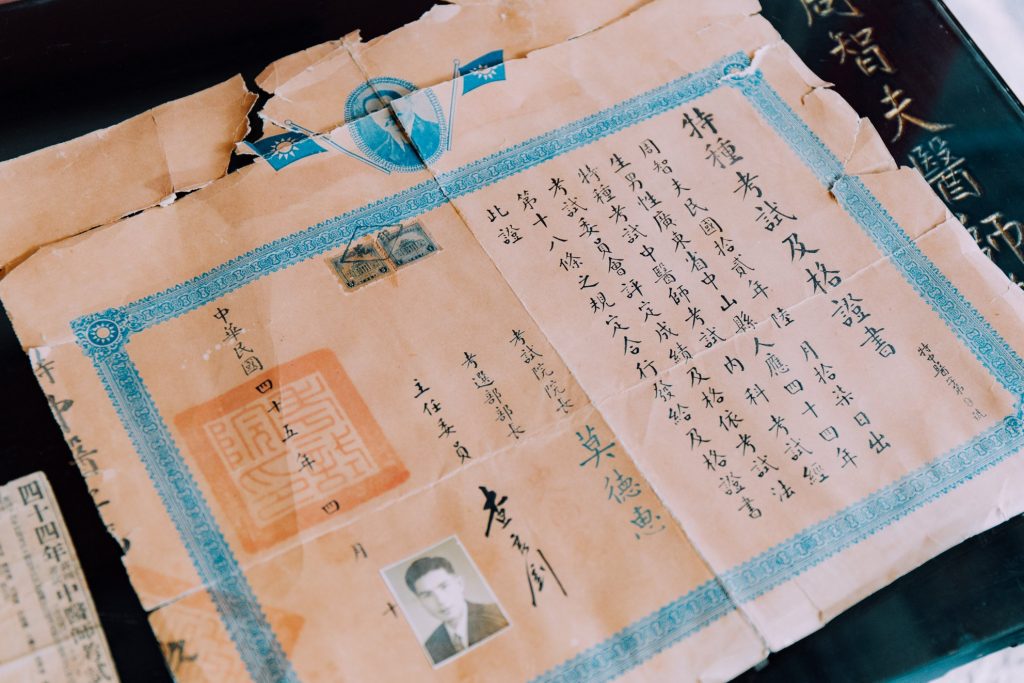 周智夫醫師
特種考試及格證書
周智夫民國拾貳年陸月拾柒日出
生男性廣東省中山縣人應四十四年
特種考試中醫師考試內科考試經
考試委員會評定成績及格依考試法
第十八條之規定合行發給及格證書
此證
考試院院長 莫德惠
考選部部長
主任委員
中華民國四十五年四月十
考試院印
四十四年中醫師考試